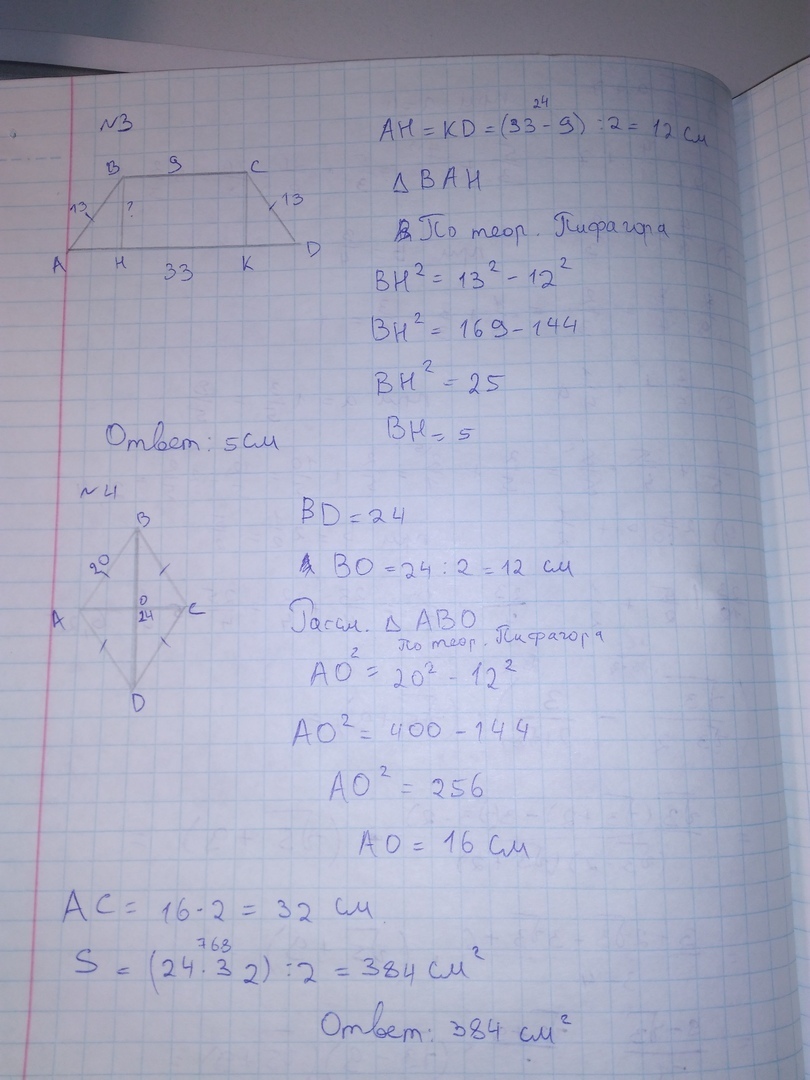 №3
B 9 C
13 ? 13
A H 33 K D
24
AH = KD = (33 - 9) : 2 = 12 см
△ BAH
По теор. Пифагора
BH² = 13² - 12²
BH² = 169 - 144
BH² = 25
BH = 5
Ответ: 5 см
№4
B
20
A O C
24
D
BD = 24
BO = 24 : 2 = 12 см
Рассм. △ ABO
По теор. Пифагора
AO² = 20² - 12²
AO² = 400 - 144
AO² = 256
AO = 16 см
AC = 16 · 2 = 32 см
768
S = (24 · 32) : 2 = 384 см²
Ответ: 384 см²